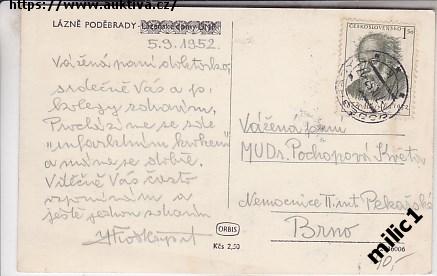 https://www.auktiva.cz/
LÁZNĚ PODĚBRADY
5.9.1952.
Vážená paní doktorko,
srdečně Vás a p.
kolegy zdravím.
Procházíme se zde
"infarktním krokem"
a máme se dobře.
Vděčně Vás často
vzpomínám a
ještě jednou zdravím
ČESKOSLOVENSKO
1.50
Vážená paní
MUDr. Pochopová Květa
Nemocnice II. int Pekařská
Brno
ORBIS
Kčs 2,50
10,-
milic1